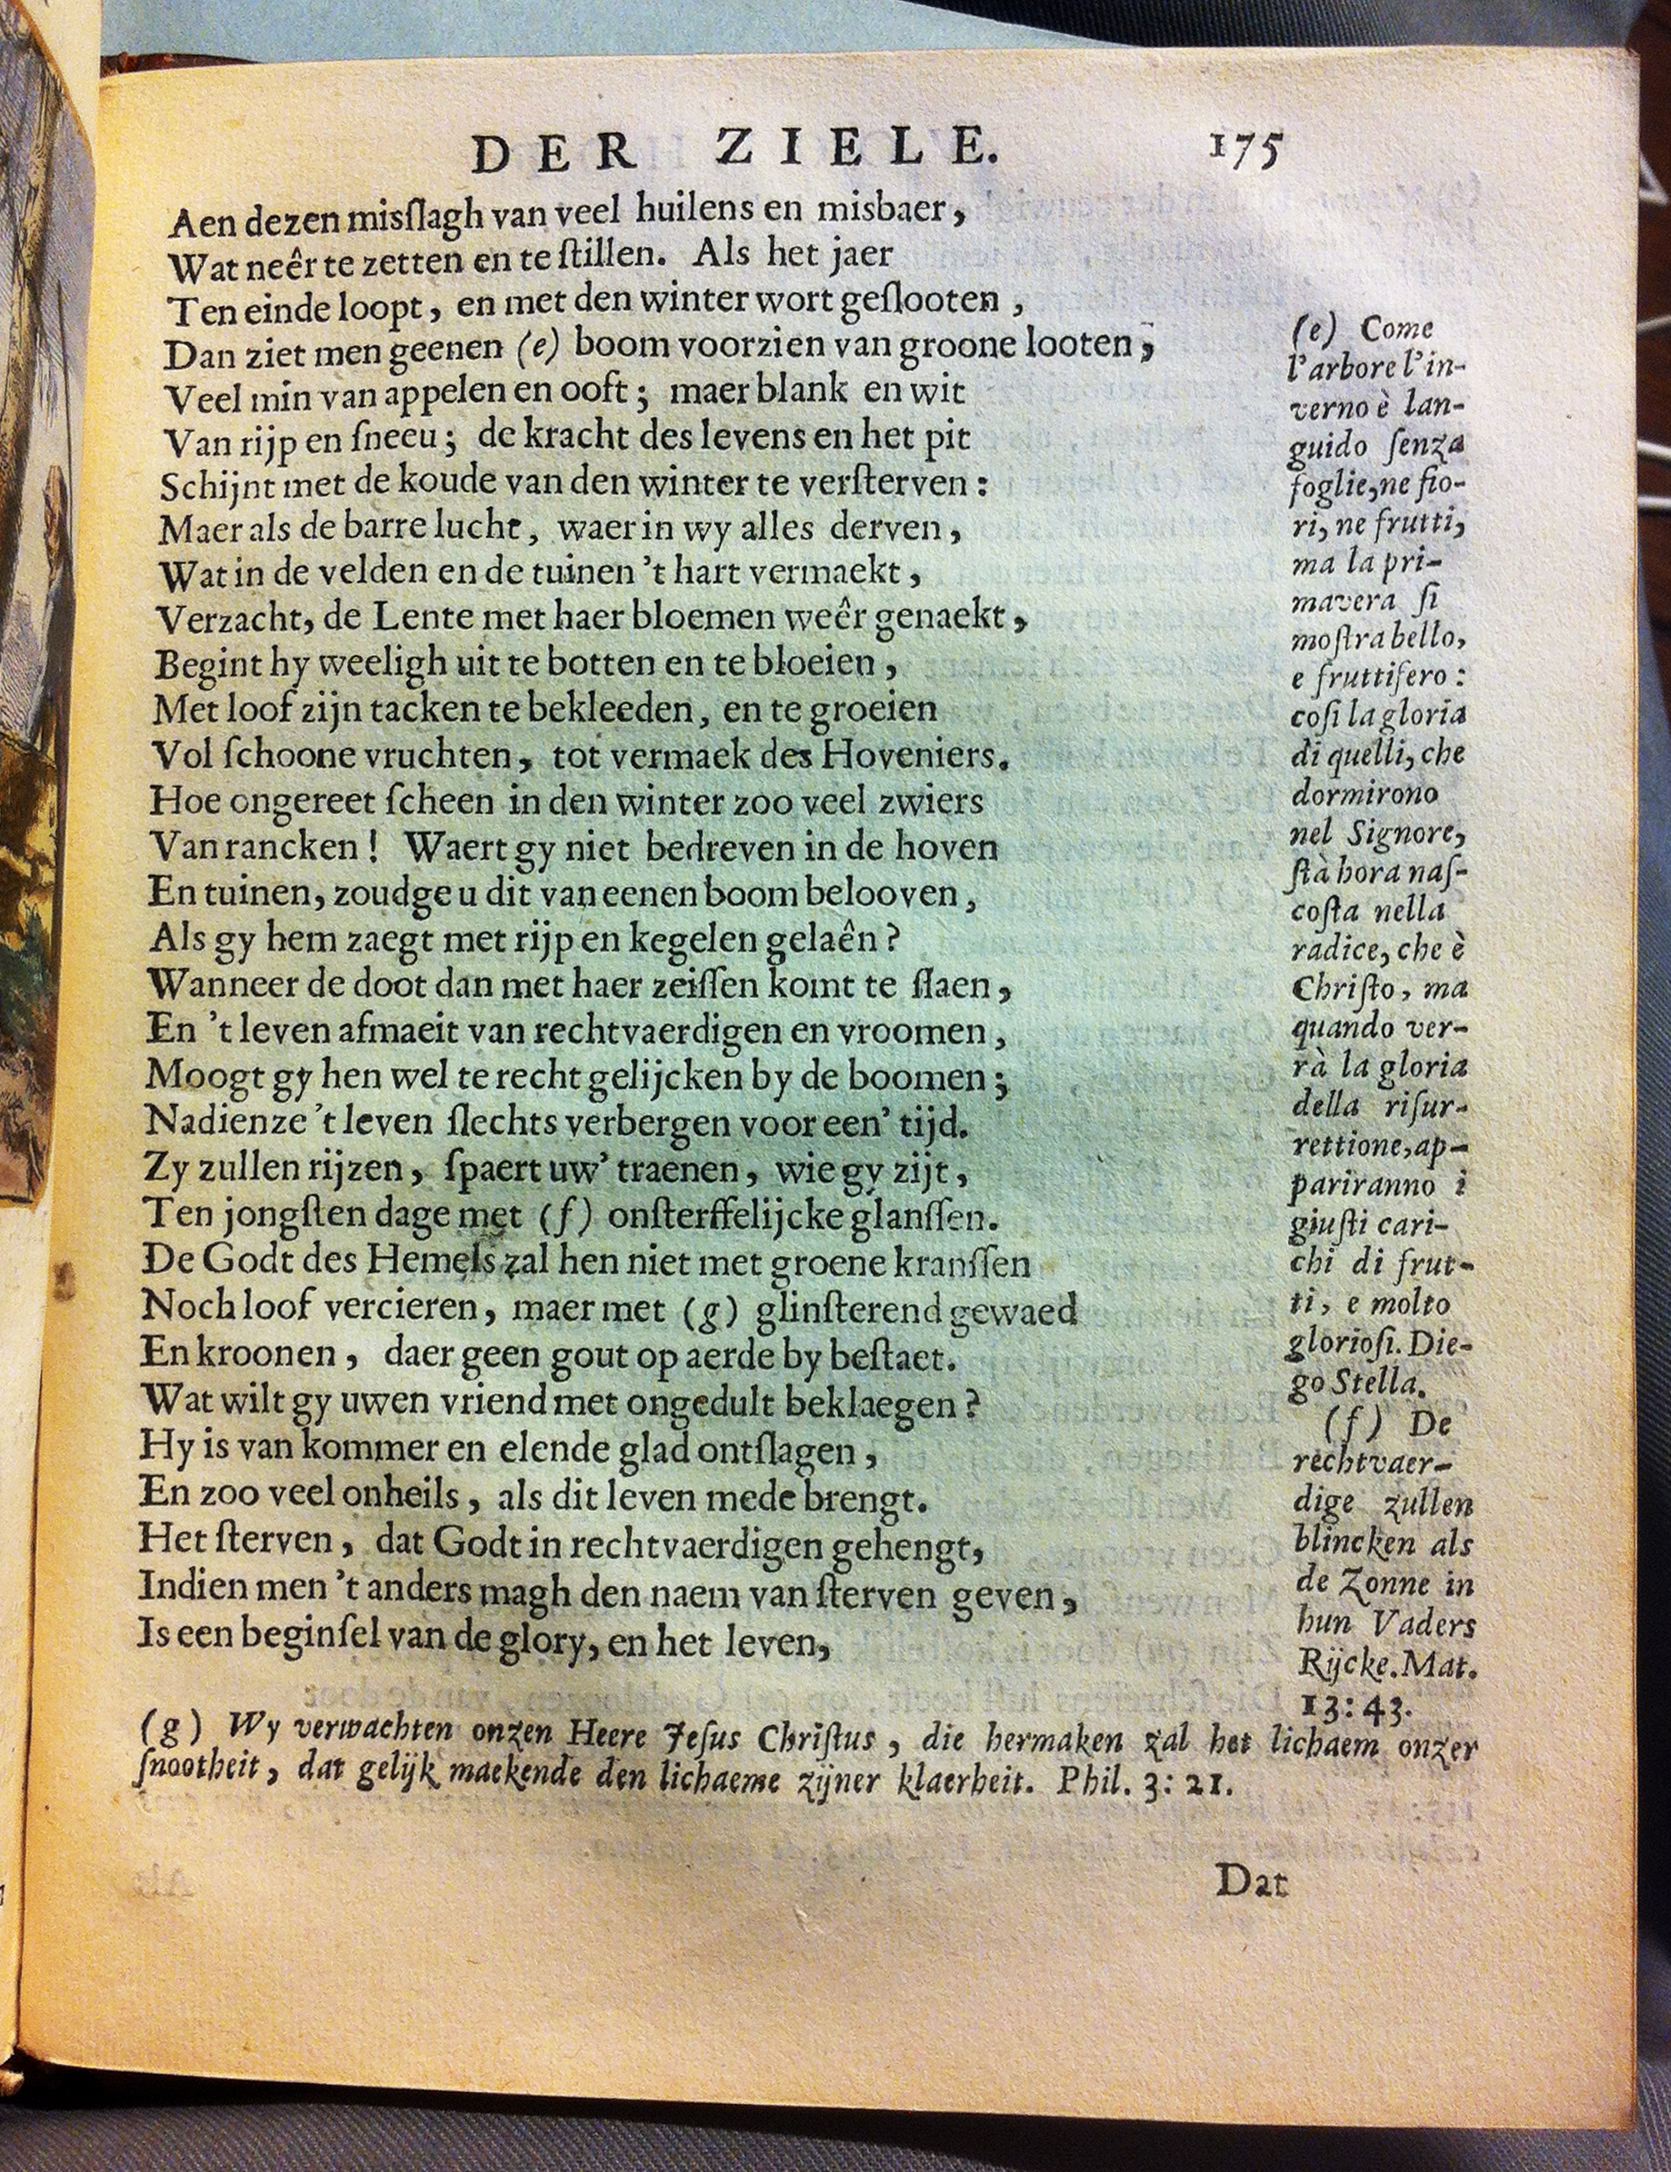 DER ZIELE. 175
Aen dezen misſlagh van veel huilens en misbaer,
Wat neêr te zetten en te ſtillen. Als het jaer
Ten einde loopt, en met den winter wort geſlooten,
Dan ziet men geenen (e) boom voorzien van groone looten,
Veel min van appelen en ooft; maer blank en wit
Van rijp en ſneeu; de kracht des levens en het pit
Schijnt met de koude van den winter te verſterven:
Maer als de barre lucht, waer in wy alles derven,
Wat in de velden en de tuinen 't hart vermaekt,
Verzacht, de Lente met haer bloemen weêr genaekt,
Begint hy weeligh uit te botten en te bloeien,
Met loof zijn tacken te bekleeden, en te groeien
Vol ſchoone vruchten, tot vermaek des Hoveniers.
Hoe ongereet ſcheen in den winter zoo veel zwiers
Van rancken! Waert gy niet bedreven in de hoven
En tuinen, zoudge u dit van eenen boom belooven,
Als gy hem zaegt met rijp en kegelen gelaên?
Wanneer de doot dan met haer zeiſſen komt te ſlaen,
En 't leven afmaeit van rechtvaerdigen en vroomen,
Moogt gy hen wel te recht gelijcken by de boomen;
Nadienze 't leven ſlechts verbergen voor een' tijd.
Zy zullen rijzen, ſpaert uw' traenen, wie gy zijt,
Ten jongſten dage met (f) onſterffelijcke glanſſen.
De Godt des Hemels zal hen niet met groene kranſſen
Noch loof vercieren, maer met (g) glinſterend gewaed
En kroonen, daer geen gout op aerde by beſtaet.
Wat wilt gy uwen vriend met ongedult beklaegen?
Hy is van kommer en elende glad ontſlagen,
En zoo veel onheils, als dit leven mede brengt.
Het ſterven, dat Godt in rechtvaerdigen gehengt,
Indien men 't anders magh den naem van ſterven geven,
Is een beginſel van de glory, en het leven,
(e) Come
l'arbore l'in-
verno è lan-
guido ſenza
foglie, ne fio-
ri, ne frutti,
ma la pri-
mavera ſi
moſtra bello,
e fruttifero:
coſi la gloria
di quelli, che
dormirono
nel Signore,
ſtà hora naſ-
coſta nella
radice, che è
Chriſto, ma
quando ver-
rà la gloria
della riſur-
rettione, ap-
pariranno i
giuſti cari-
chi di frut-
ti, e molto
glorioſi. Die-
go Stella.
(f) De
rechtvaer-
dige zullen
blincken als
de Zonne in
hun Vaders
Rijcke. Mat.
13: 43.
(g) Wy verwachten onzen Heere Jeſus Chriſtus, die hermaken zal het lichaem onzer
ſnootheit, dat gelijk maekende den lichaeme zijner klaerheit. Phil. 3: 21.
Dat